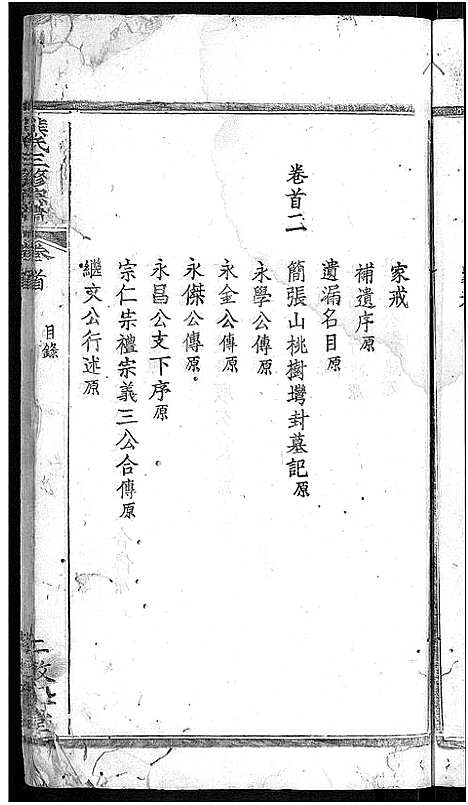 家戒
補遺序原
遺漏名目原
卷首二
簡張山桃樹塆封墓記原
永學公傳原
永金公傳原
永傑公傳原
永昌公支下序原
宗仁宗禮宗義三公合傳原
繼文公行述原
熊氏三修宗譜
卷首
目錄